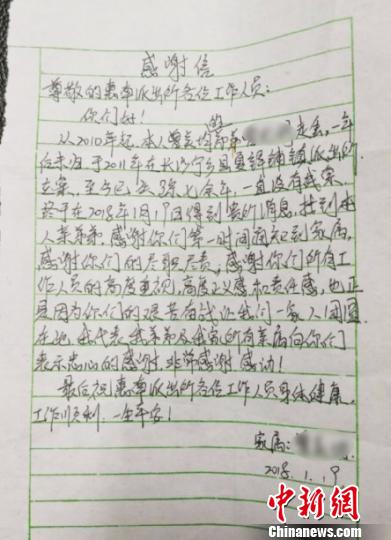 感谢信
尊敬的惠阜派出所各位工作人员:
你们好!
从2010年起,本人 的 弟弟 走丢,一年
后未归,于2011年在长沙宁乡县 铺派出所
立案,至今已去7年七余年,一直没有线索,
终于在2018年1月9日得到贵所消息,找到本
人亲弟弟,感谢你们第一时间通知到家属,
感谢你们的尽职尽责,感谢你们所有工
作人员的高度重视,高度正义感和责任感,也正
是因为你们的艰苦 让我们一家人团圆
在此,我代表我弟弟及我家所有亲属向你们
表示忠心的感谢,非常感谢,感动!
最后祝惠阜派出所各位工作人员身体健康,
工作顺利,一生平安!
家属:
2018.1.9
中新网
Chinanews.com